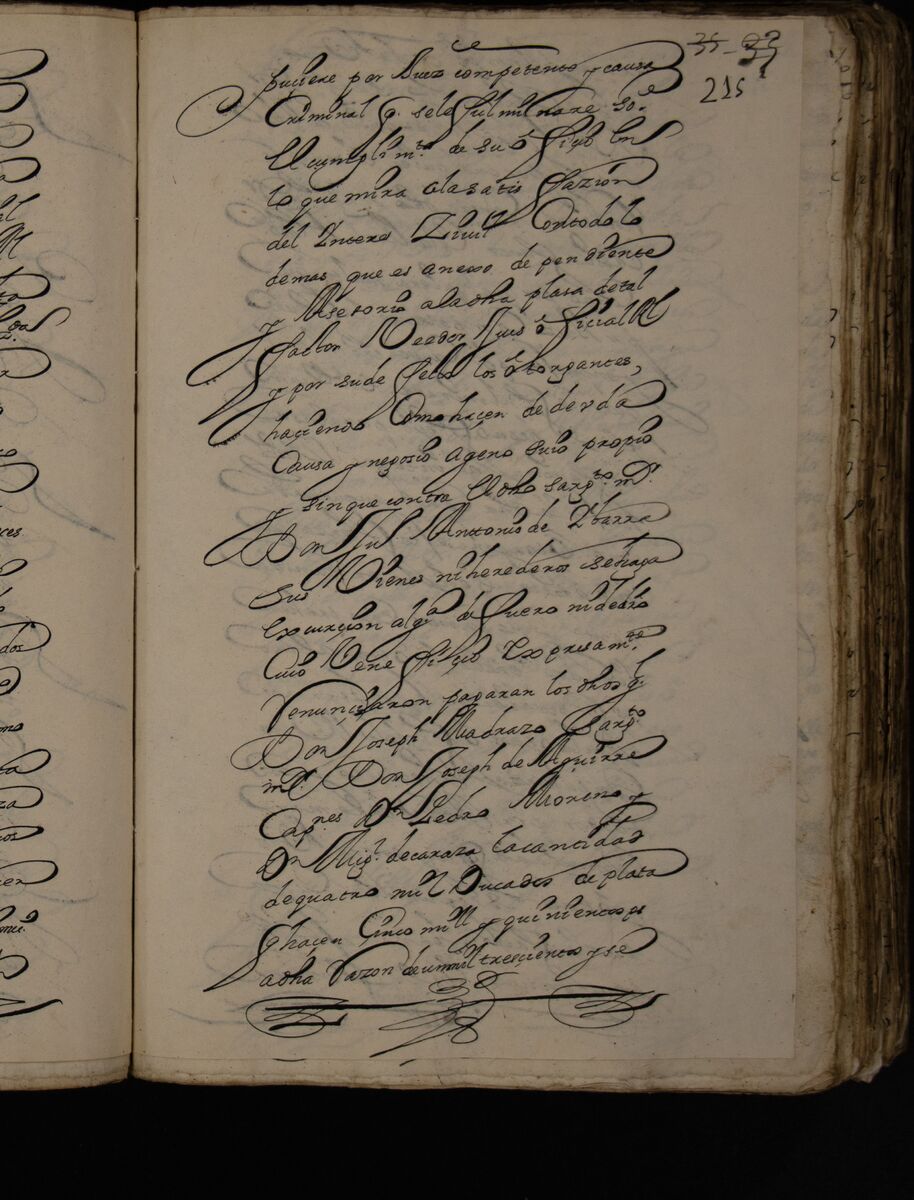 35-37
215
pusiere por Juez competente y causa
Criminal q. sele fulminare so.e
El cumplim.to de su ofiçio En
lo que mira alasatisfazion
del Interes Zivil Contodo lo
demas que es anexo dependiente
y Asesorio aladha plasa detal
factor Veedor Jues ofiçial Rl
y por sude fecto los otorgantes,
haçiendo Como haçen de deuda
Causa y negosio ageno suio propio
y sinque contra El dho sarg.to m.r
Don Ju.o Antonio de Ybarra
sus Vienes niherederos sehaga
Excurçion alg.a de fuero nidedro
Cuio Venefiçio Expresam.te
renunçiaron pagaran los dhos g.l
Don Joseph Madrazo Sarg.to
m.r Don Joseph de Aguirre
Cap.nes D.n Pedro Moreno y
D.n Mig.l decaraza lacantidad
dequatro mil Ducados de plata
q haçen Çinco mill y quinientos ps
adha Razon deunmil tresçientos yse